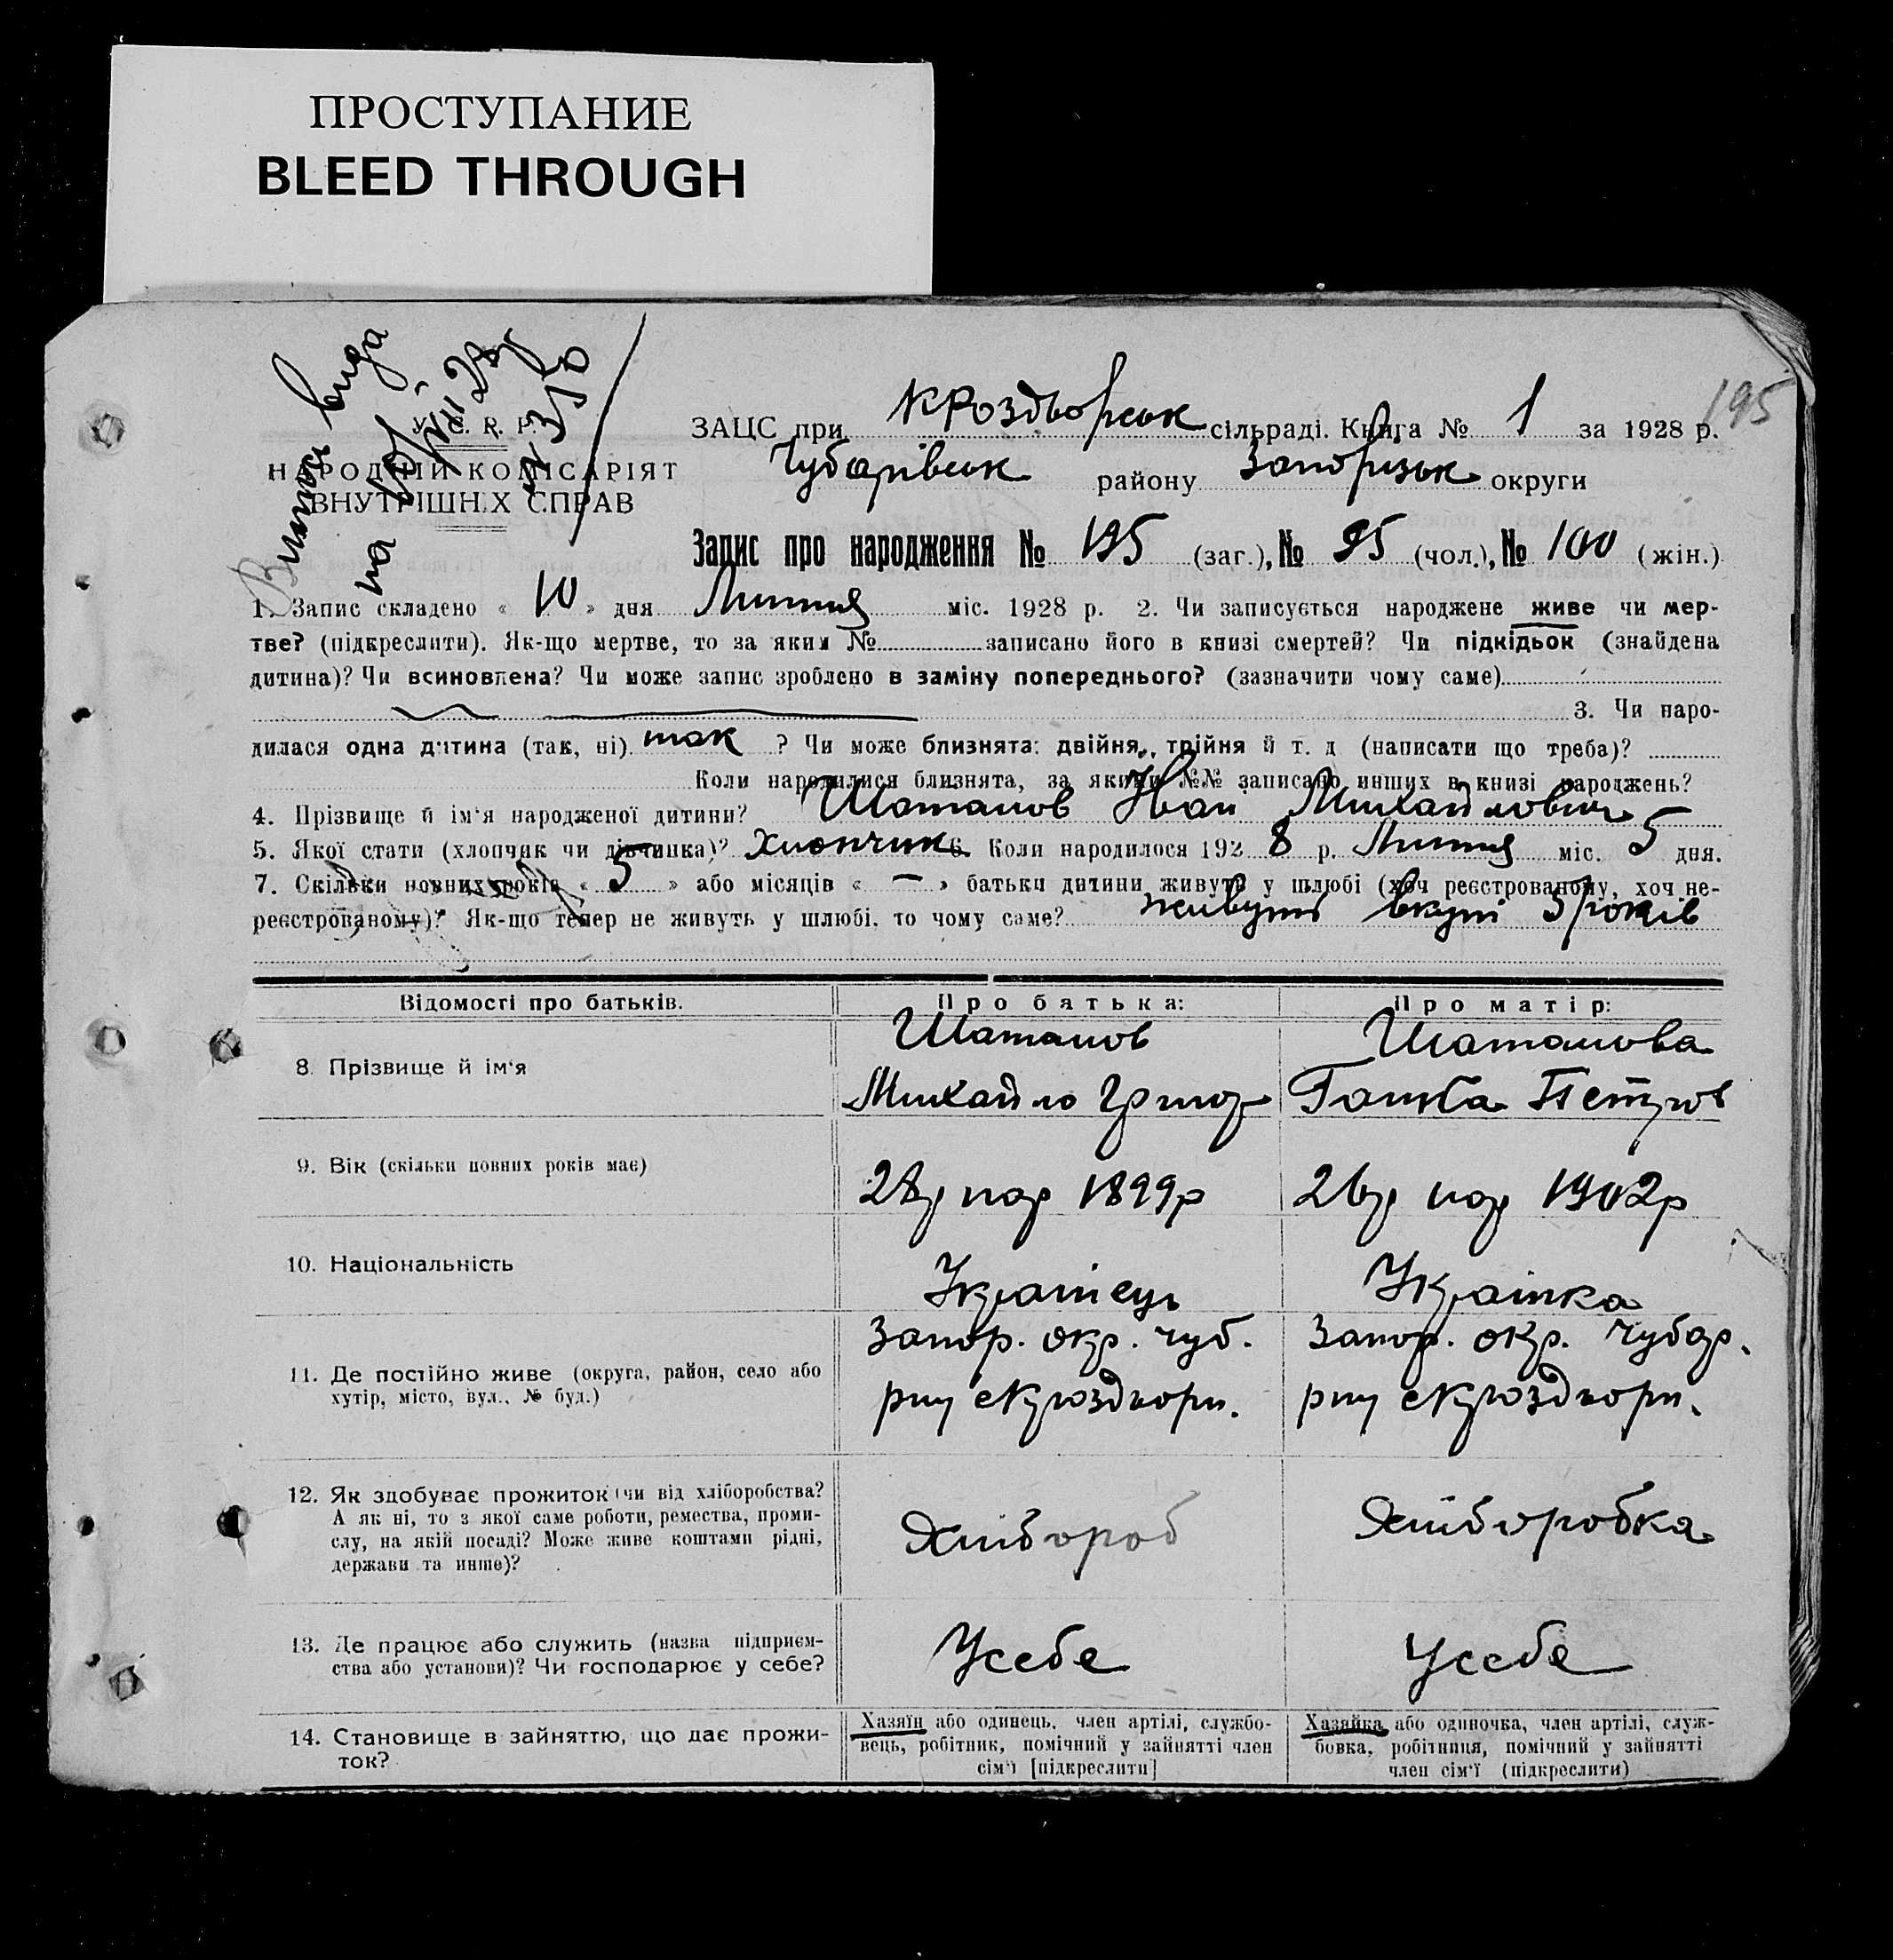 ПРОСТУПАНИЕ
BLEED THROUGH
195
У. С. Р. Р.
НАРОДНИЙ КОМІСАРІЯТ
ВНУТРІШНІХ СПРАВ
ЗАЦС при сільраді. Книга № 1 за 1928 р.
Чубарівськ району Запорізьк округи
Запис про народження № 195 (заг.), № 95 (чол.), № 100 (жін.)
1. Запис складено « 10 » дня Липня міс. 1928 р. 2. Чи записується народжене живе чи мер-
тве? (підкреслити). Як-що мертве, то за яким № записано його в книзі смертей? Чи підкідьок (знайдена
дитина)? Чи всиновлена? Чи може запис зроблено в заміну попереднього? (зазначити чому саме)
3. Чи наро-
дилася одна дитина (так, ні) так ? Чи може близнята: двійня, трійня й т. д (написати що треба)?
Коли народилися близнята, за якими №№ записано инших в книзі народжень?
4. Прізвище й ім'я народженої дитини? Шаталов Іван Михайлович
5. Якої стати (хлопчик чи дівчинка)? Хлопчик 6. Коли народилося 192 8 р. Липня міс. 5 дня.
7. Скільки повних років « 5 » або місяців « — » батьки дитини живуть у шлюбі (хоч реєстрованому, хоч не-
реєстрованому)? Як-що тепер не живуть у шлюбі, то чому саме? живуть вкупі 5 років
Відомості про батьків. Про батька: Про матір:
Шаталов Шаталова
8. Прізвище й ім'я
Михайло Григор Ганна Петров
9. Вік (скільки повних років має)
28р нар 1899р 26р нар 1902р
10. Національність
Українець Українка
Запор. окр. Чуб. Запор. окр. Чубар.
11. Де постійно живе (округа, район, село або
хутір, місто, вул., № буд.)
12. Як здобуває прожиток (чи від хліборобства?
А як ні, то з якої саме роботи, ремества, проми-
слу, на якій посаді? Може живе коштами рідні,
держави та инше)?
Хлібороб Хліборобка
13. Де працює або служить (назва підприєм-
ства або установи)? Чи господарює у себе?
Усебе Усебе
14. Становище в зайняттю, що дає прожи-
ток?
Хазяїн або одинець, член артілі, службо-
вець, робітник, помічний у зайнятті член
сім'ї [підкреслити]
Хазяйка або одиночка, член артілі, служ-
бовка, робітниця, помічний у зайнятті
член сім'ї (підкреслити)